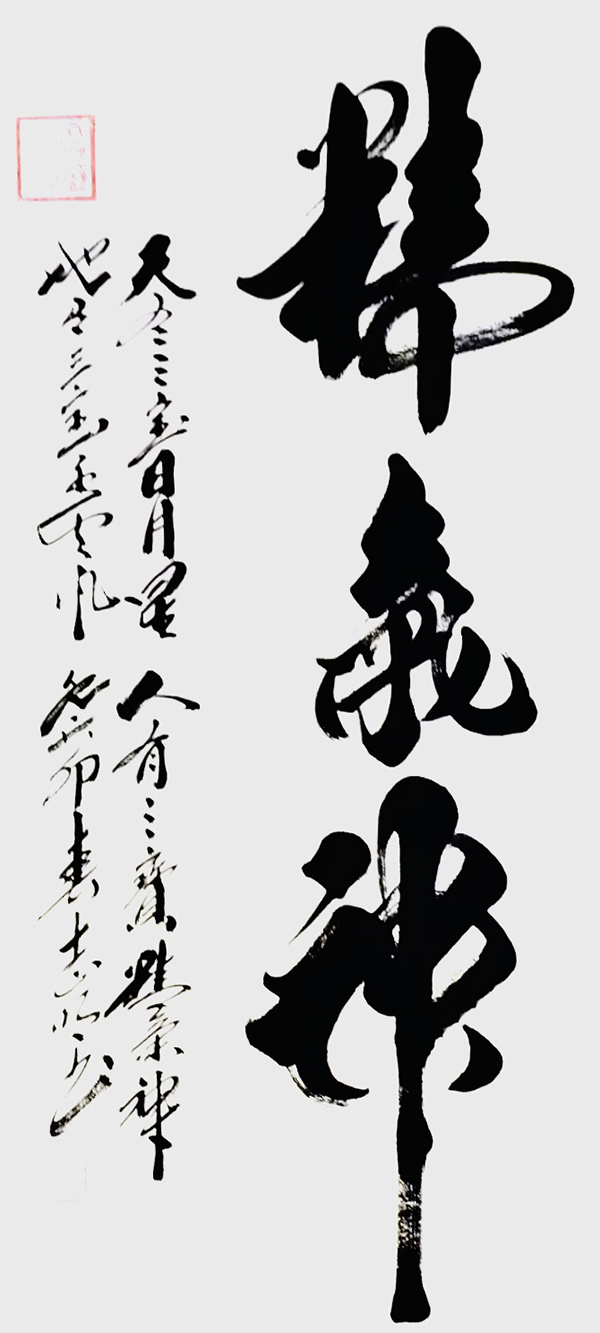 精氣神
天有三宝日月星 人有三寶精氣神
地有三宝水火風 癸卯